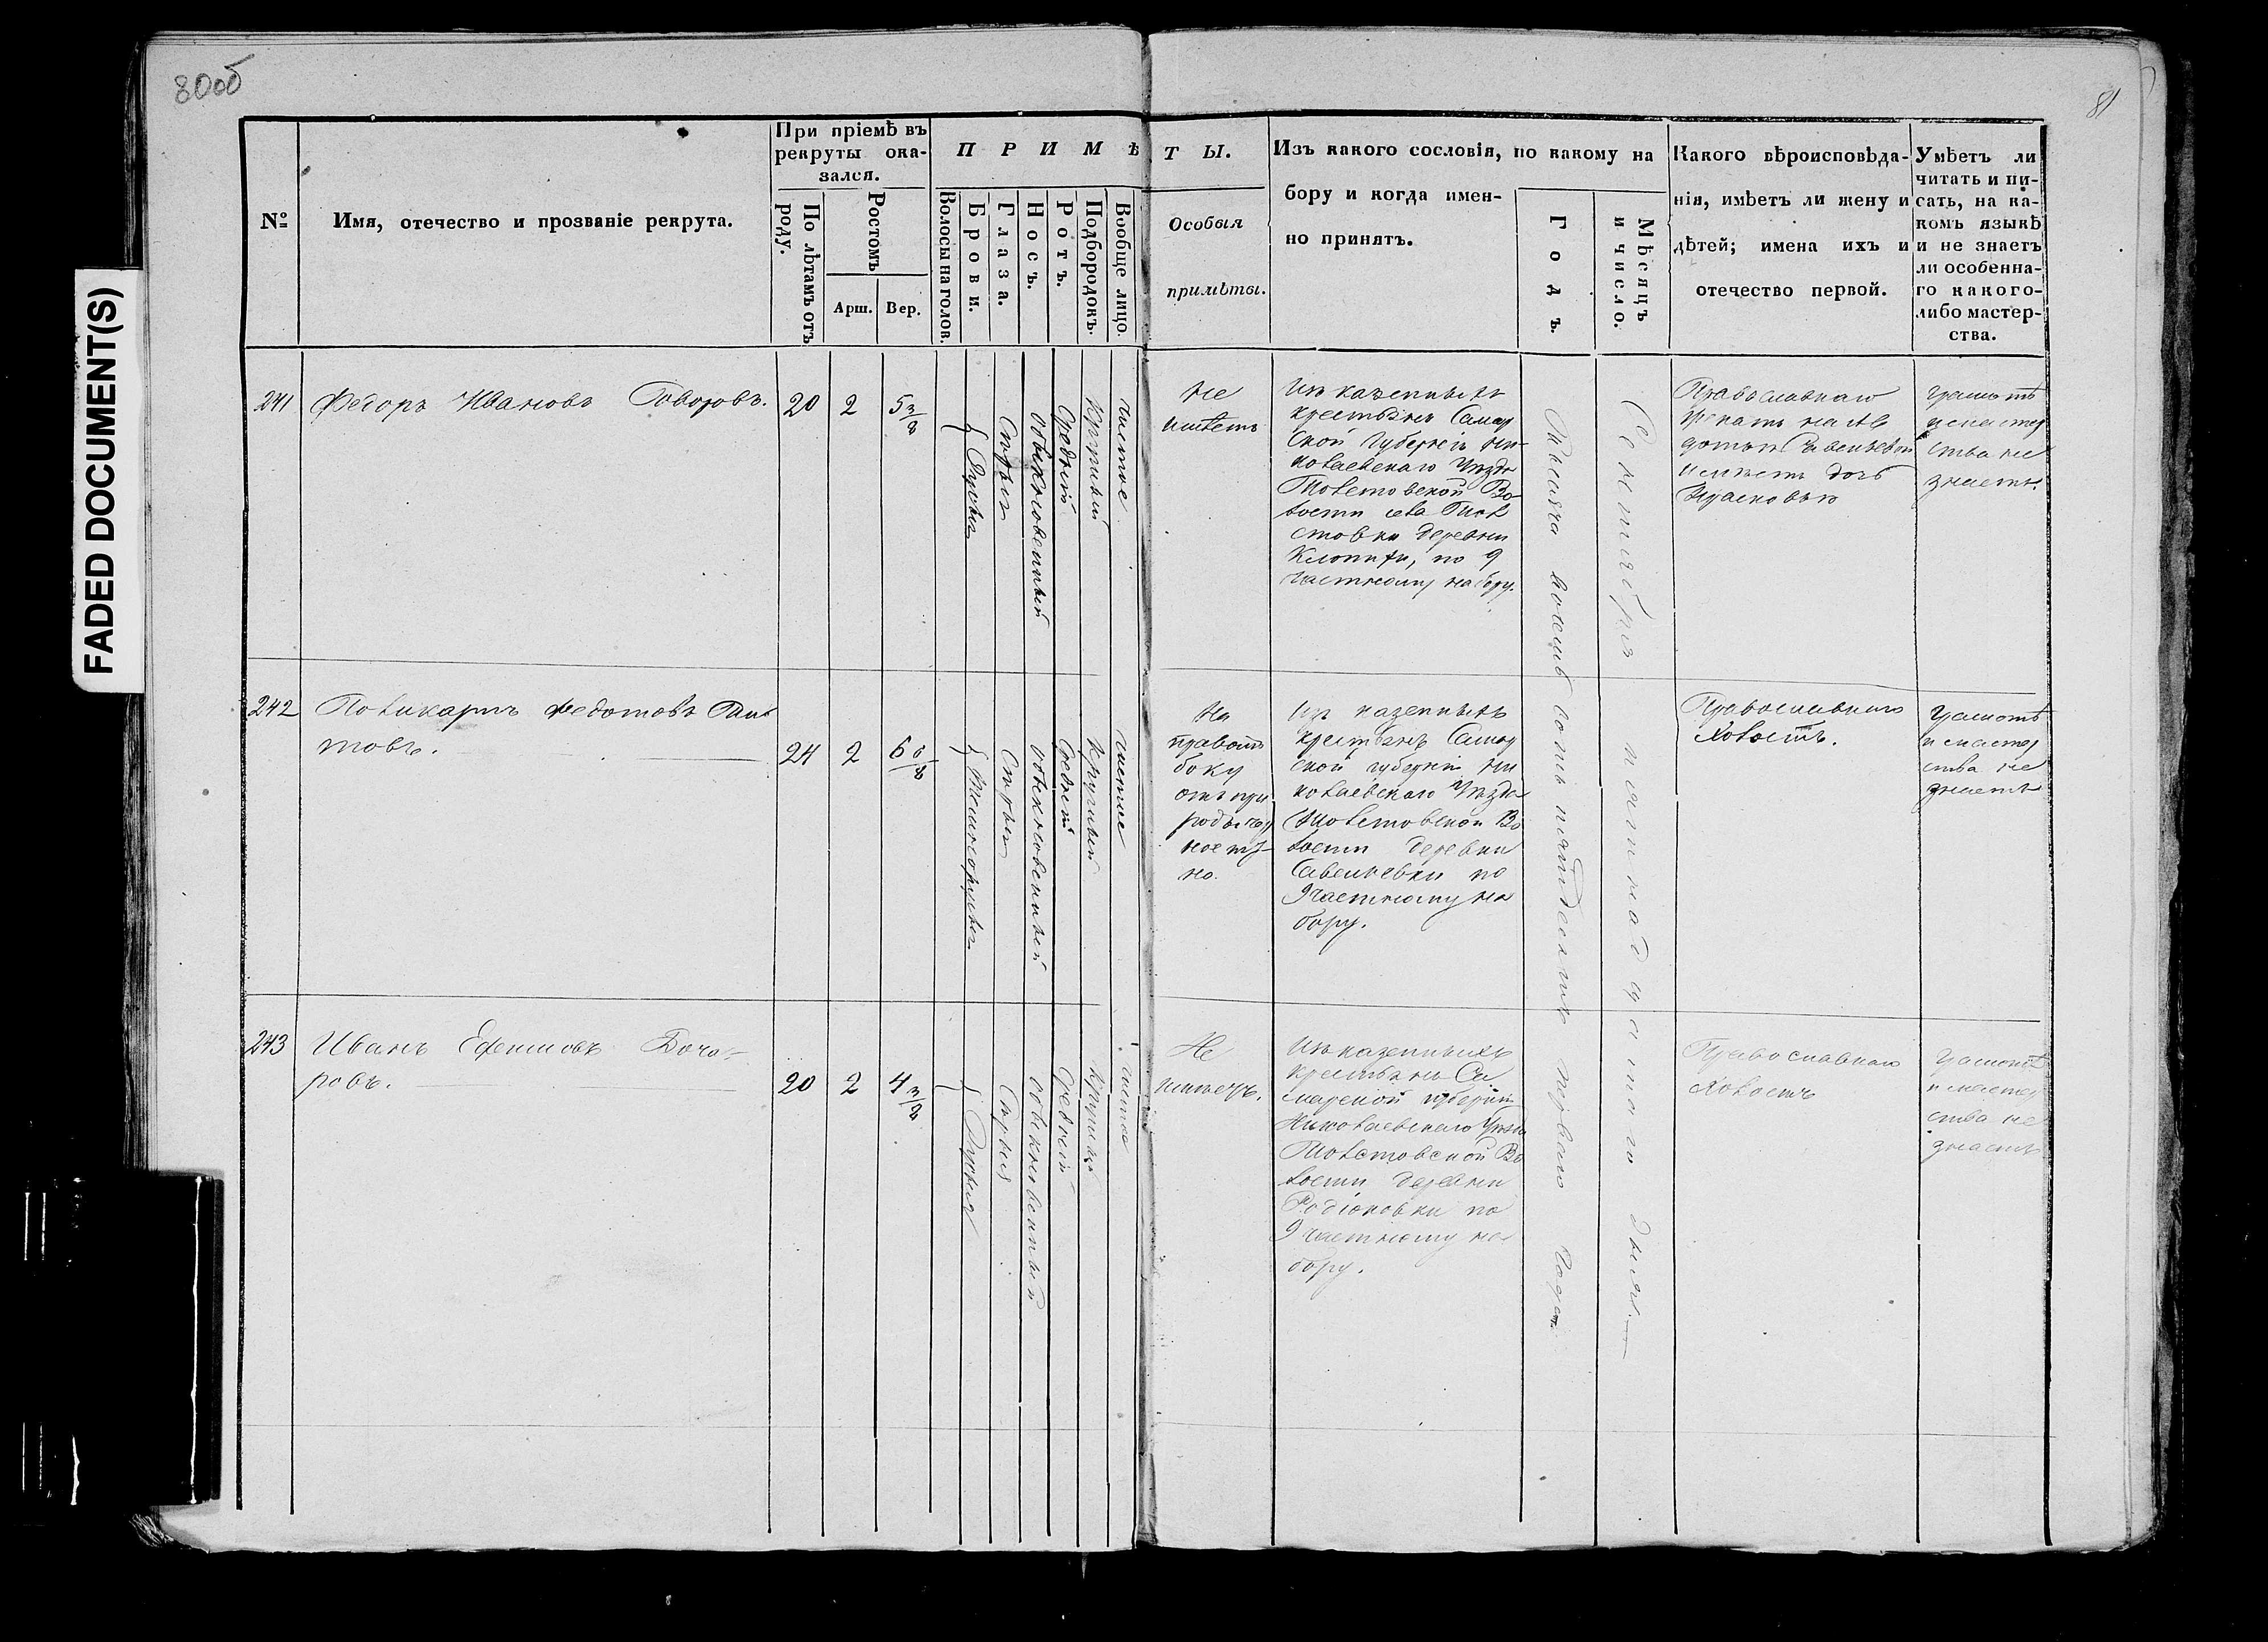 80об
81
FADED DOCUMENT(S)
№
Имя, отечество и прозваніе рекрута.
При пріемѣ въ
рекруты ока-
зался.
По лѣтамъ отъ
роду.
Ростомъ
Арш.
Вер.
ПРИМѢТЫ.
Волосы на голов.
Брови.
Глаза.
Носъ.
Ротъ.
Подбородокъ.
Вообще лицо.
Особыя
примѣты.
Изъ какого сословія, по какому на
бору и когда имен-
но принятъ.
Годъ.
Мѣсяцъ
и число.
Какого вѣроисповѣда-
нія, имѣетъ ли жену и
дѣтей; имена ихъ и
отечество первой.
Умѣетъ ли
читать и пи-
сать, на ка-
комъ языкѣ
и не знаетъ
ли особенна-
го какого-
либо мастер-
ства.
241
Федоръ Ивановъ Говоровъ.
20
2
5 3/8
Русыя
Сѣрыя
обыкновенный
средній
круглый
чистое
Не
имѣетъ
Изъ казенныхъ
крестьянъ Самар
ской губерніи Ни-
колаевскаго Уѣзда
Толстовской Во
лости села Тол
стовки деревни
по 9
частному набору.
Тысяча восемь сотъ пятьдесятъ перваго года.
Сентября пятнадцатаго дня.
Православнаго
женатъ на Ав
дотьи Савельевой
имѣетъ дочь
Прасковью
грамотѣ
и мастер
ства не
знаетъ.
242
Поликарпъ Федотовъ Ти
товъ.
24
2
6 6/8
Темнорусыя
Сѣрыя
обыкновенный
средній
круглый
чистое
На
правомъ
боку
отъ при
роды чер
ное пят-
но.
Изъ казенныхъ
крестьянъ Самар
ской губерніи Ни
колаевскаго Уѣзда
Толстовской Во
лости деревни
Савельевки по
9 частному на
бору.
Православнаго
Холостъ.
грамотѣ
и мастер
ства не
знаетъ
243
Иванъ Ефимовъ Боча-
ровъ.
20
2
4 3/8
Русыя
Сѣрыя
обыкновенный
средній
круглый
чистое
Не
имѣетъ.
Изъ казенныхъ
крестьянъ Са
марской губерніи
Николаевскаго Уѣзда
Толстовской Во
лости деревни
Родіоновки по
9 частному на
бору.
Православнаго
Холостъ
грамотѣ
и мастер
ства не
знаетъ